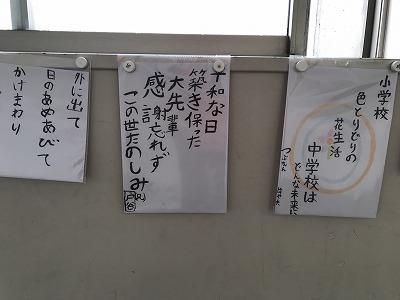 外に出て
日のあめあびて
かけまわり
平和な日
築き保った
大先輩
感謝忘れず
この世たのしみ
戸谷
小学校
色とりどりの
花生活
中学校は
どんな未来に